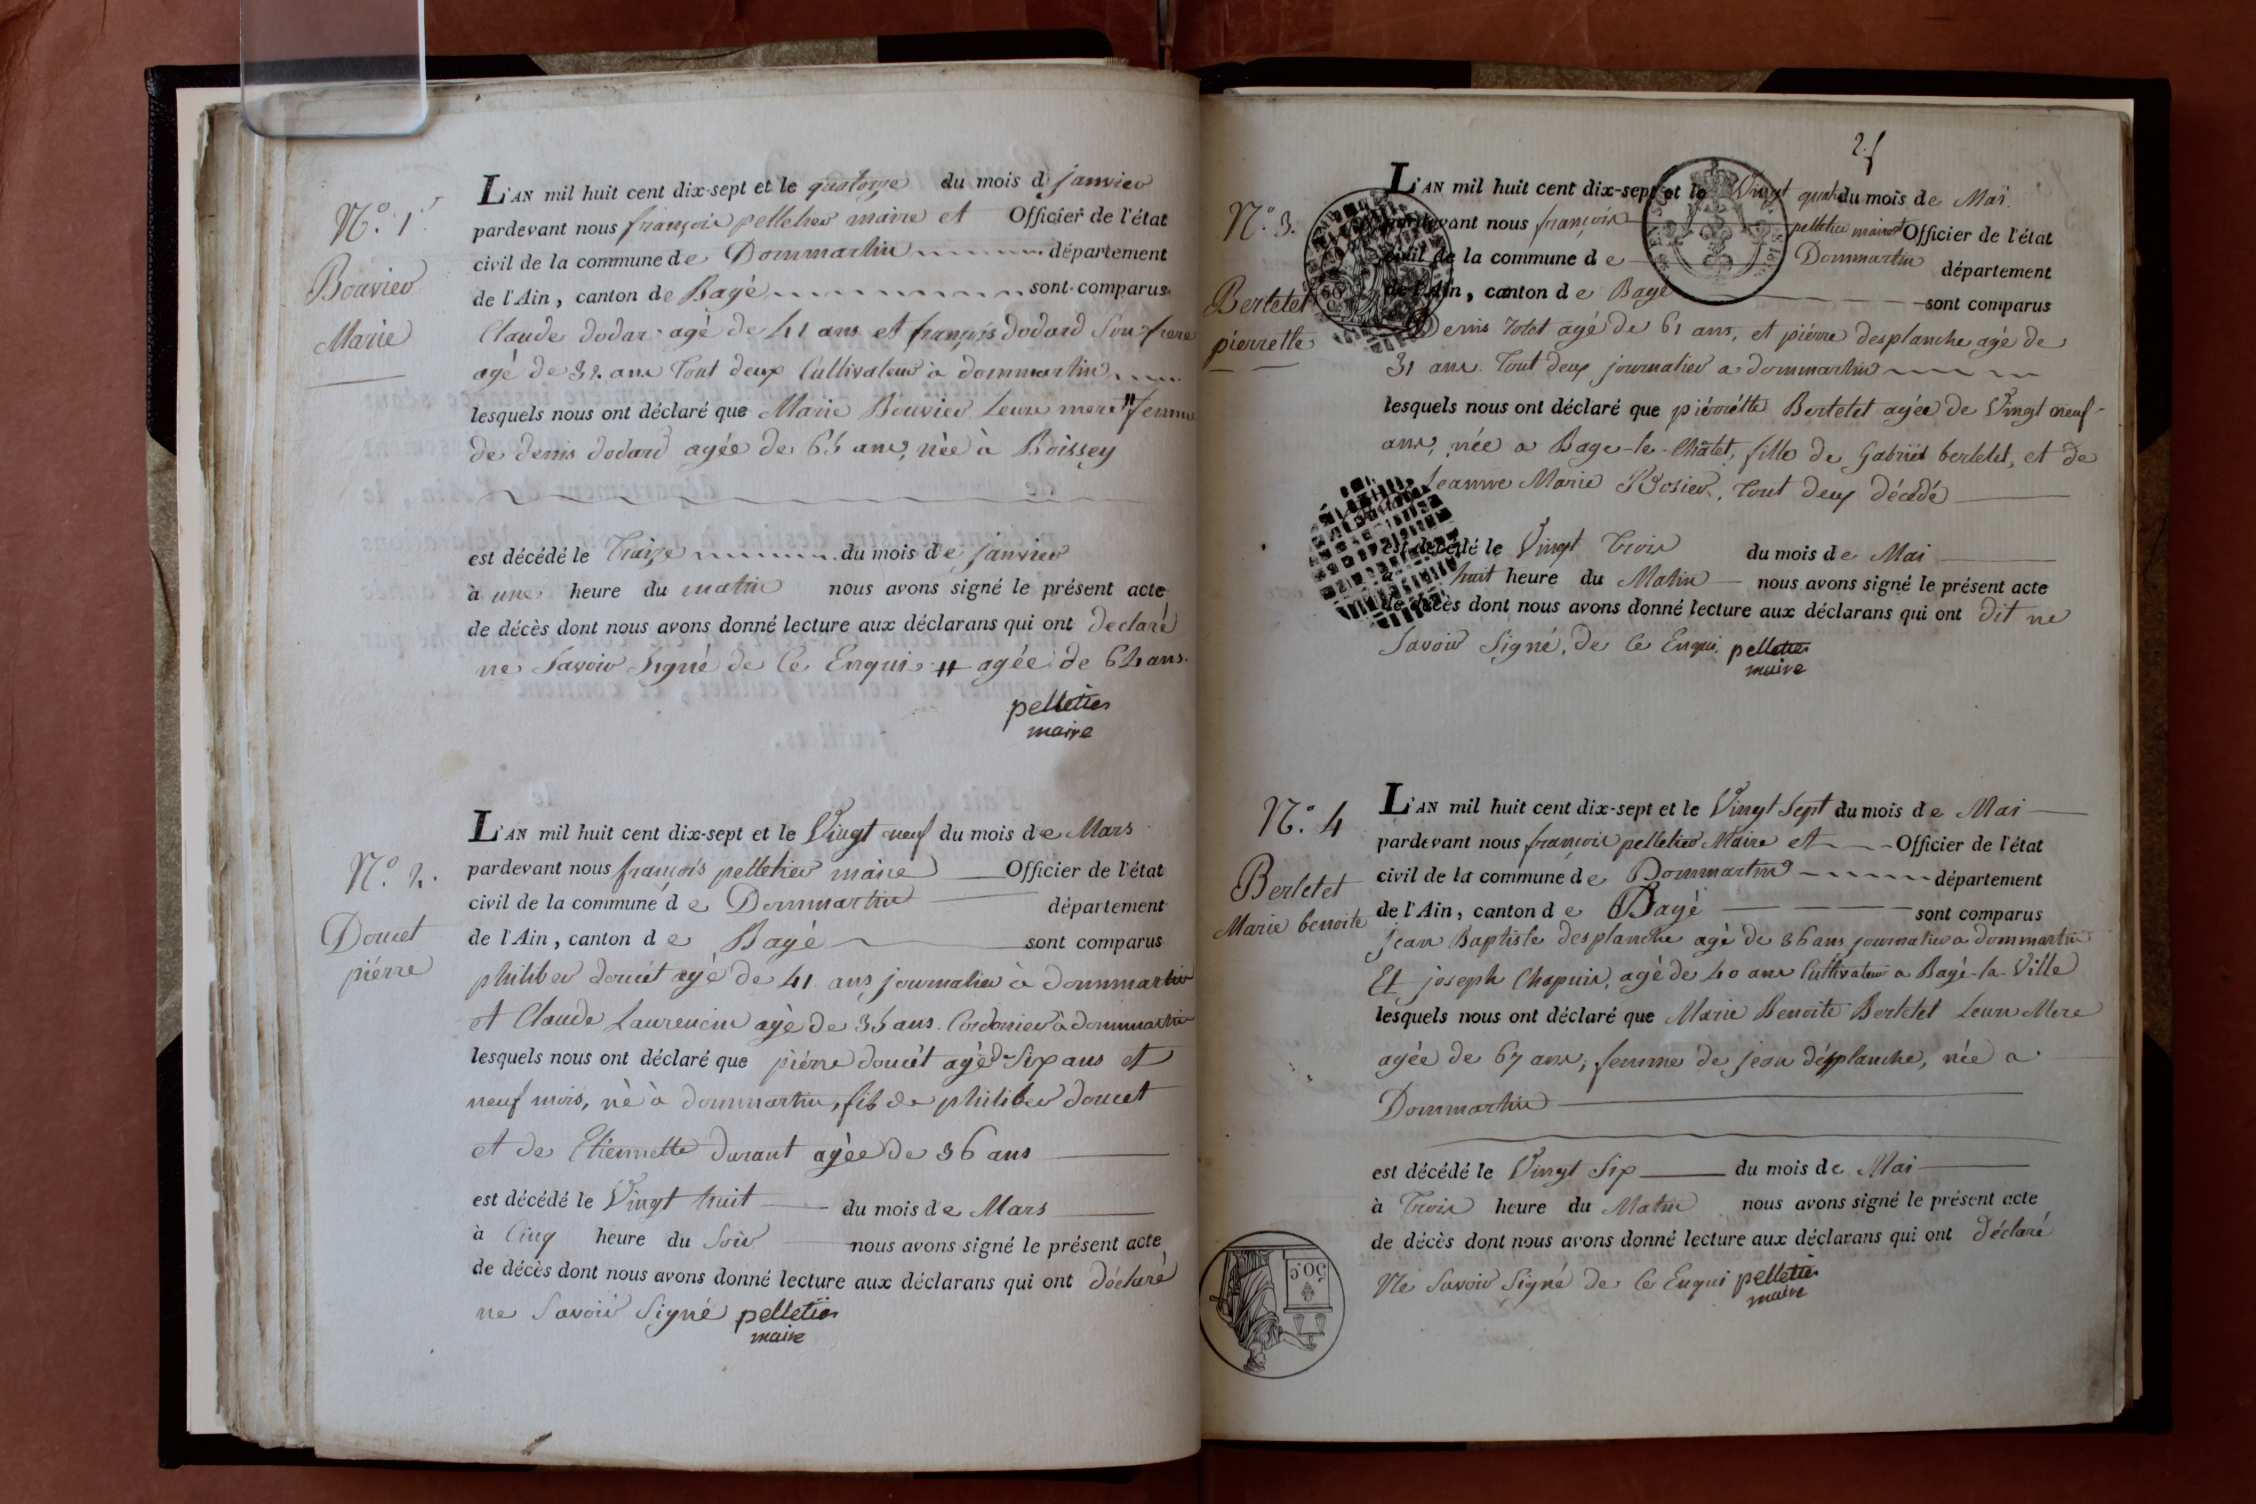 N.° 1.r
Bouvier
Marie
L'AN mil huit cent dix-sept et le quatorze du mois d janvier
pardevant nous françois pelletier maire et Officier de l'état
civil de la commune de Dommartin département
de l'Ain, canton de Bagé sont comparus
Claude dodar agé de 41 ans et françois dodard Son frere
agé de 32 ans Tout deux Cultivateur à dommartin
lesquels nous ont déclaré que Marie Bouvier Leure mere # femme
de denis dodard agée de 65 ans, née à Boissey
est décédé le Traize du mois de janvier
à une heure du matin nous avons signé le présent acte
de décès dont nous avons donné lecture aux déclarans qui ont declaré
ne Savoir Signé de Ce Enquis # agée de 64 ans.
pelletier
maire
N.° 2.
Doucet
piérre
L'AN mil huit cent dix-sept et le Vingt neuf du mois de Mars
pardevant nous françois pelletier maire Officier de l'état
civil de la commune de Dommartin département
de l'Ain, canton de Bagé sont comparus
philiber doucet agé de 41 ans journalier à dommartin
et Claude Laurencin agé de 35 ans Cordonier à dommartin
lesquels nous ont déclaré que piérre doucét agé de Six ans et
neuf mois, né à dommartin, fils de philiber doucet
et de Etiennette durant agée de 36 ans
est décédé le Vingt huit du mois de Mars
à Cinq heure du Soir nous avons signé le présent acte
de décès dont nous avons donné lecture aux déclarans qui ont déclaré
ne Savoir Signé pelletier
maire
2.
N.° 3.
Bertetet
pierrette
L'AN mil huit cent dix-sept et le Vingt quatre du mois de Mai
pardevant nous françois pelletier maire et Officier de l'état
civil de la commune de Dommartin département
de l'Ain, canton de Bagé sont comparus
Denis agé de 61 ans, et piérre desplanche agé de
31 ans Tout deux journalier a dommartin
lesquels nous ont déclaré que piérrétte Bertetet agée de Vingt neuf
ans, née a Bage-le-Châtet, fille de Gabriel bertetet, et de
Jeanne Marie Rosier, Tout deux décédé
est décédé le Vingt Trois du mois de Mai
à huit heure du Matin nous avons signé le présent acte
de décès dont nous avons donné lecture aux déclarans qui ont dit ne
Savoir Signé, de Ce Enqui. pelletier
maire
N.° 4
Bertetet
Marie benoite
L'AN mil huit cent dix-sept et le Vingt Sept du mois de Mai
pardevant nous françois pelletier Maire et Officier de l'état
civil de la commune de Dommartin département
de l'Ain, canton de Bagé sont comparus
jean Baptiste desplanche agé de 36 ans journalier a dommartin
Et joseph Chapuis, agé de 40 ans Cultivateur a Bagé-la-Ville
lesquels nous ont déclaré que Marie Benoite Bertetet Leure Mere
agée de 67 ans, femme de jean désplanche, née a
Dommartin
est décédé le Vingt Six du mois de Mai
à Trois heure du Matin nous avons signé le présent acte
de décès dont nous avons donné lecture aux déclarans qui ont déclaré
Ne Savoir Signé de Ce Enqui pelletier
maire
50.c